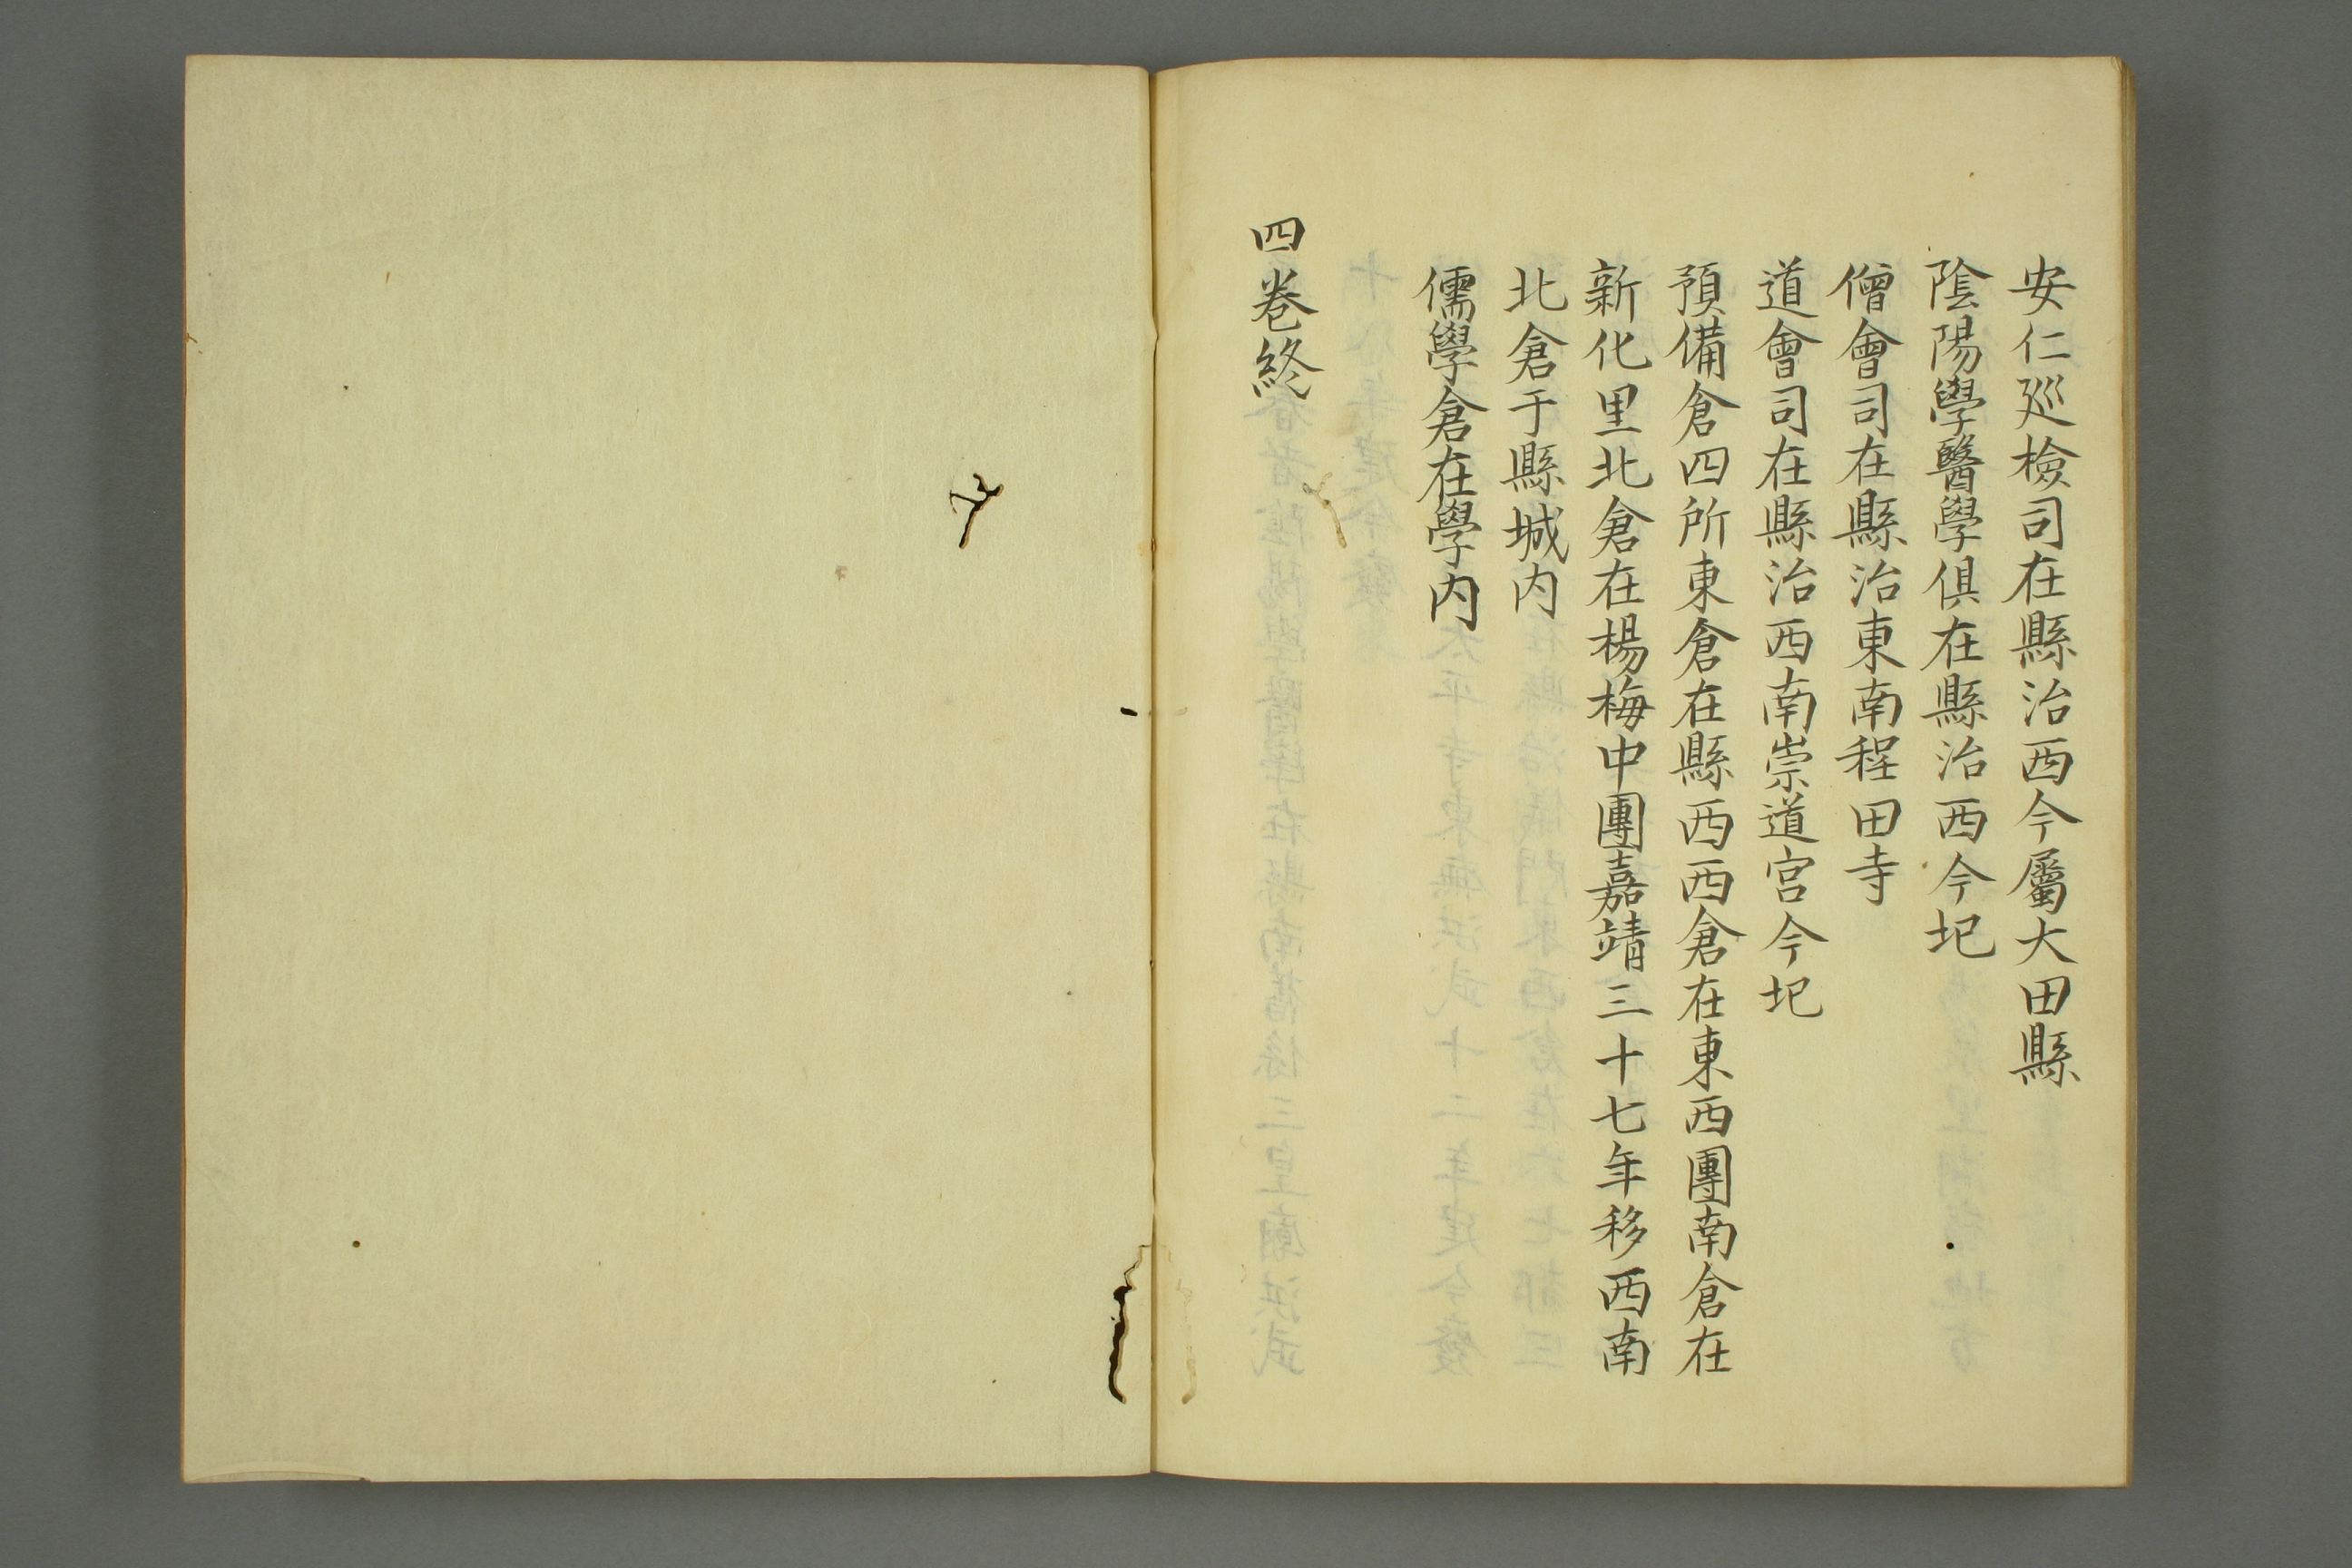 安仁廵檢司在縣治西今屬大田縣
陰陽學醫學俱在縣治西今圯
僧會司在縣治東南程田寺
道會司在縣治西南崇道宮今圯
預備倉四所東倉在縣西西倉在東西團南倉在
新化里北倉在楊梅中團嘉靖三十七年移西南
北倉于縣城内
儒學倉在學内
四卷終